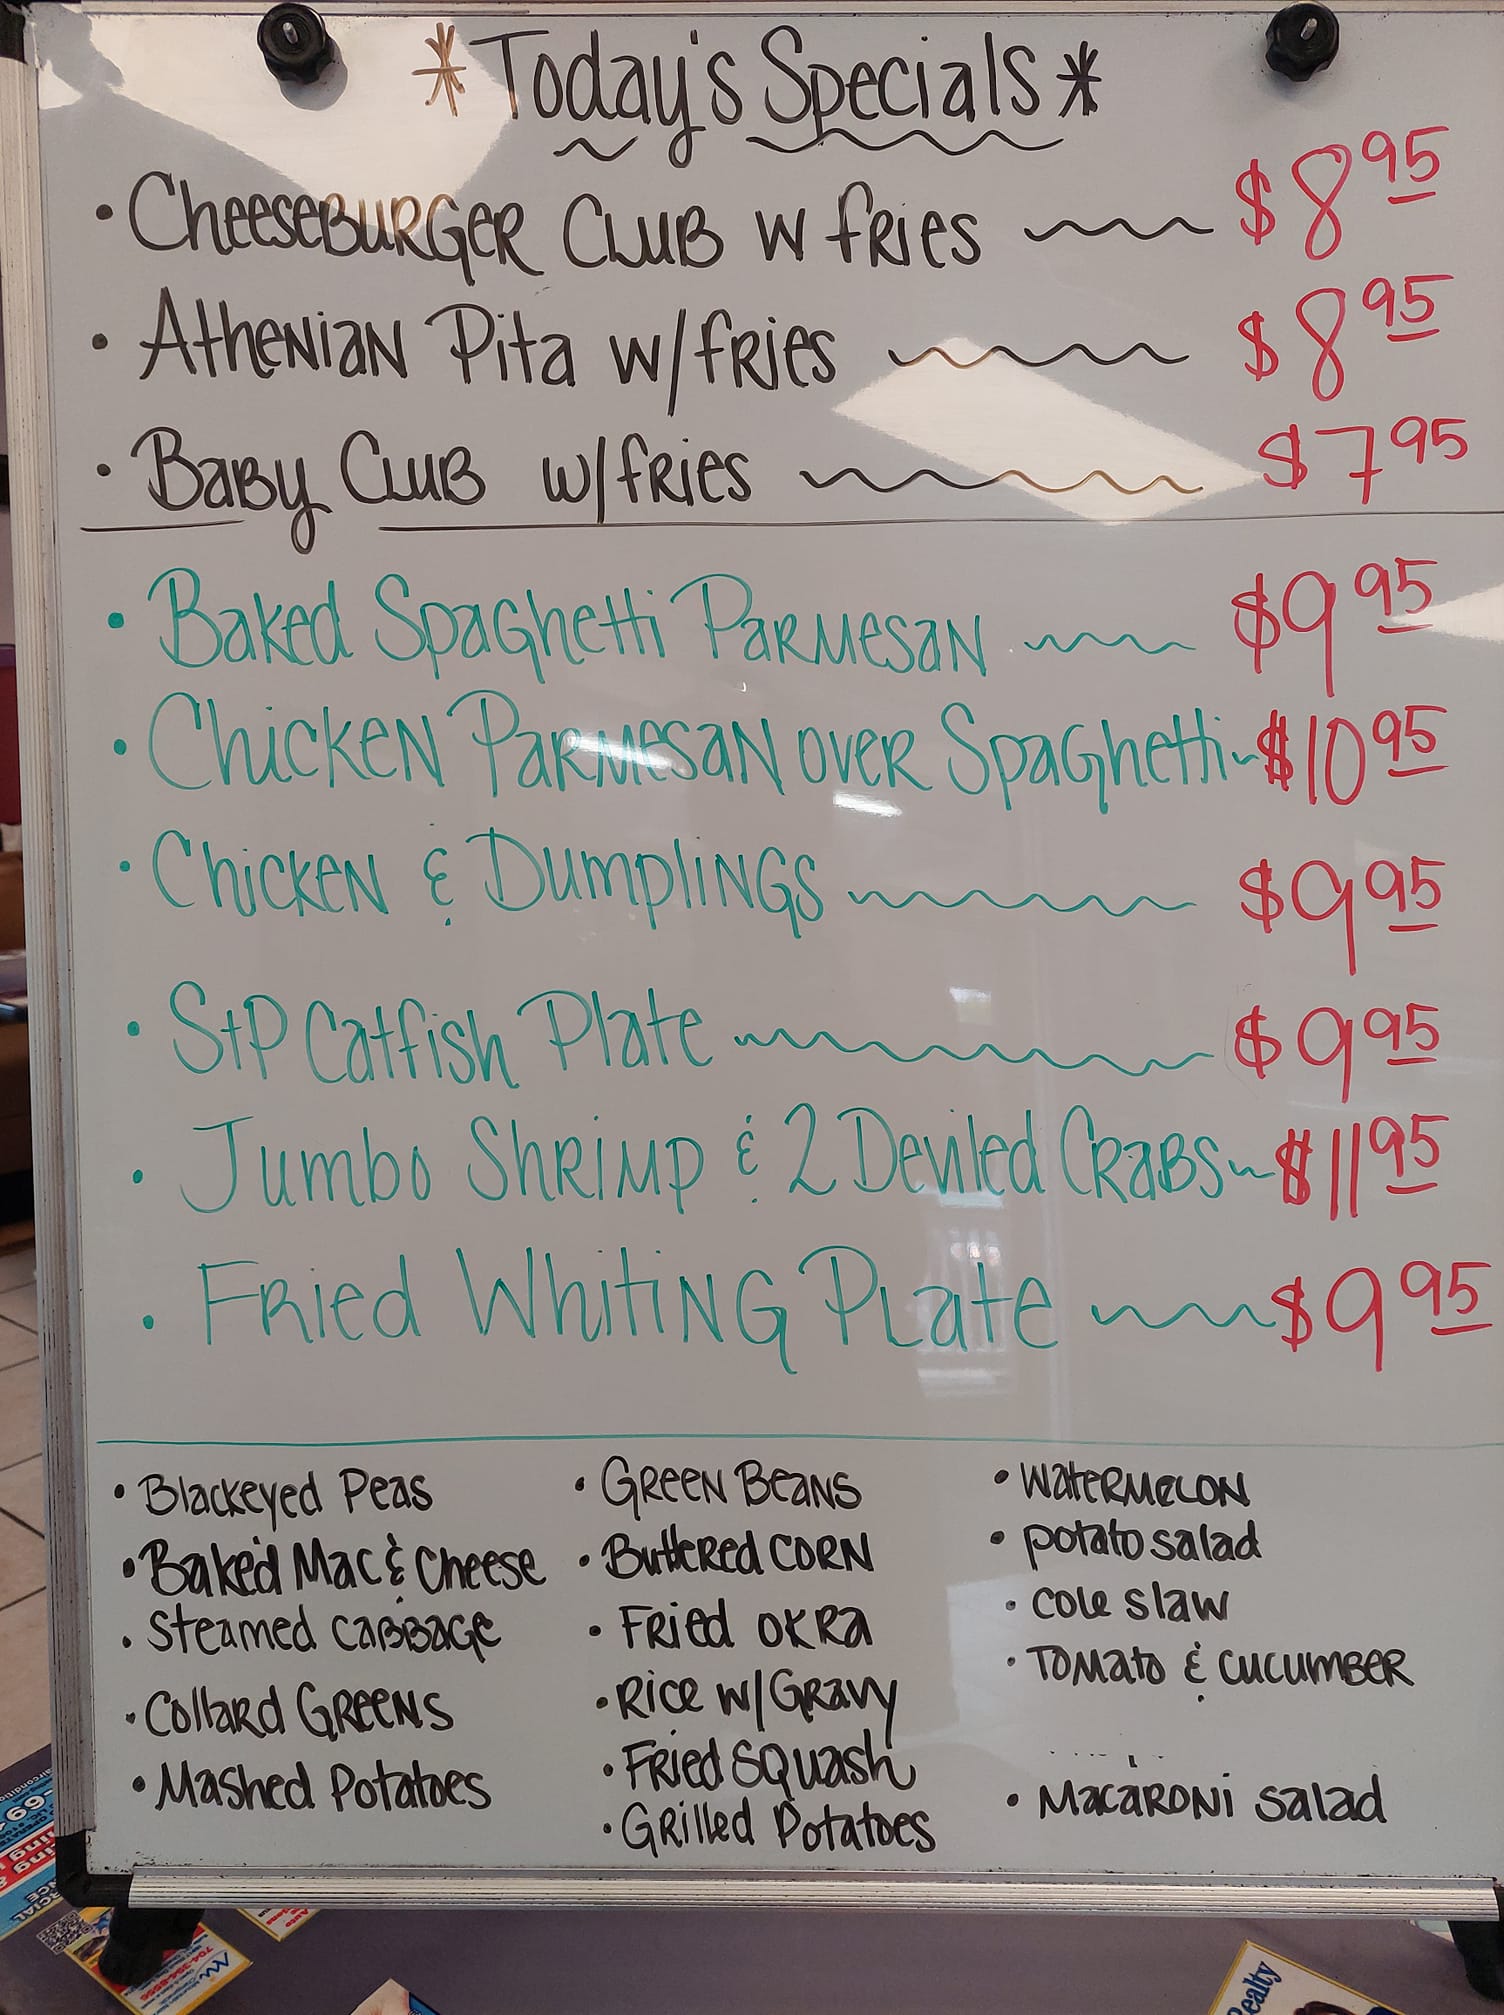 *Today's Specials*
• Cheeseburger Club w fries $8 95
• Athenian Pita w/fries $8 95
• Baby Club w/fries $7 95
• Baked Spaghetti Parmesan $9 95
• Chicken Parmesan over Spaghetti $10 95
• Chicken & Dumplings $9 95
• StP Catfish Plate $9 95
• Jumbo Shrimp & 2 Deviled Crabs $11 95
• Fried Whiting Plate $9 95
• Blackeyed Peas
• Baked Mac & Cheese
• Steamed Cabbage
• Collard Greens
• Mashed Potatoes
• Green Beans
• Buttered Corn
• Fried Okra
• Rice w/Gravy
• Fried Squash
• Grilled Potatoes
• Watermelon
• potato salad
• cole slaw
• Tomato & cucumber
• Macaroni Salad
Realty